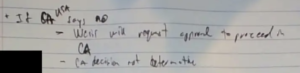 • If CA USA says no
- Weiss will request approval to proceed in
CA
- CA decision not determinative